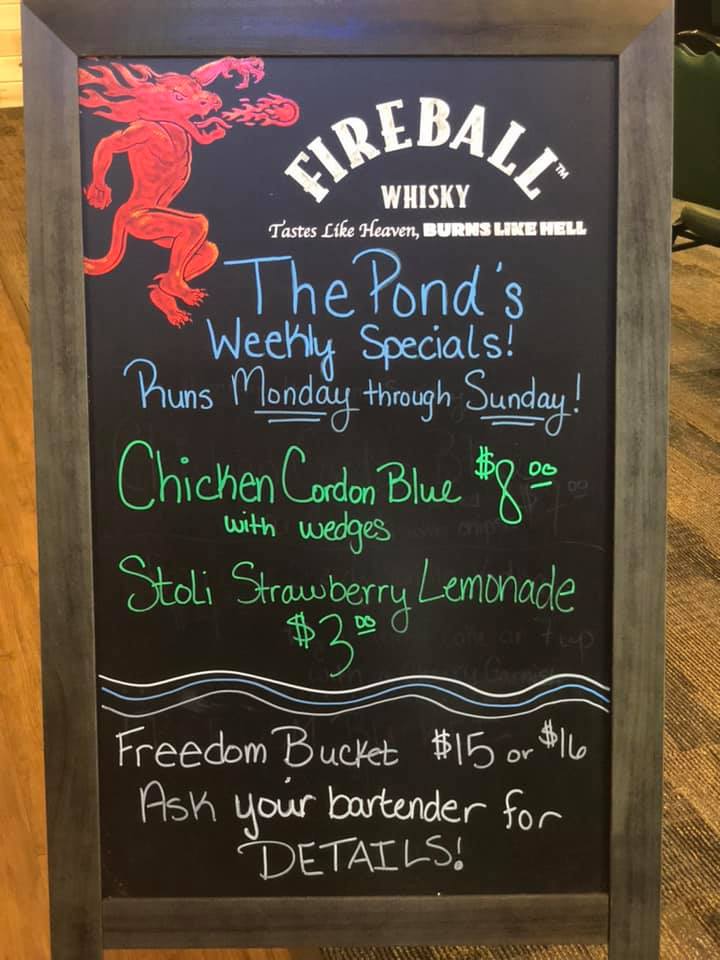 FIREBALL™
WHISKY
Tastes Like Heaven, BURNS LIKE HELL
The Pond's
Weekly Specials!
Runs Monday through Sunday!
Chicken Cordon Blue $8.00
with wedges
Stoli Strawberry Lemonade
$3.00
Freedom Bucket $15 or $16
Ask your bartender for
DETAILS!